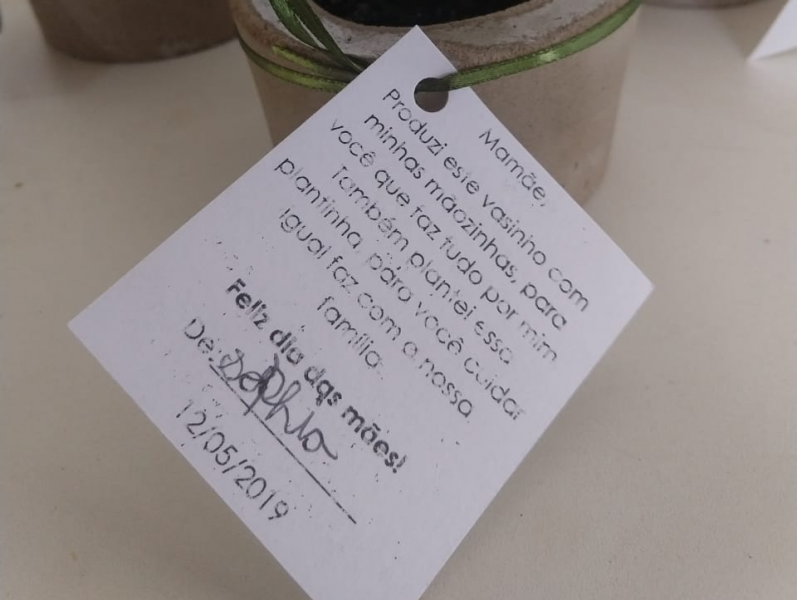 Mamãe,
Produzi este vasinho com
minhas mãozinhas, para
você que faz tudo por mim
Também plantei essa
plantinha, para você cuidar
igual faz com a nossa
família.
Feliz dia das mães!
De: Sophia
12/05/2019